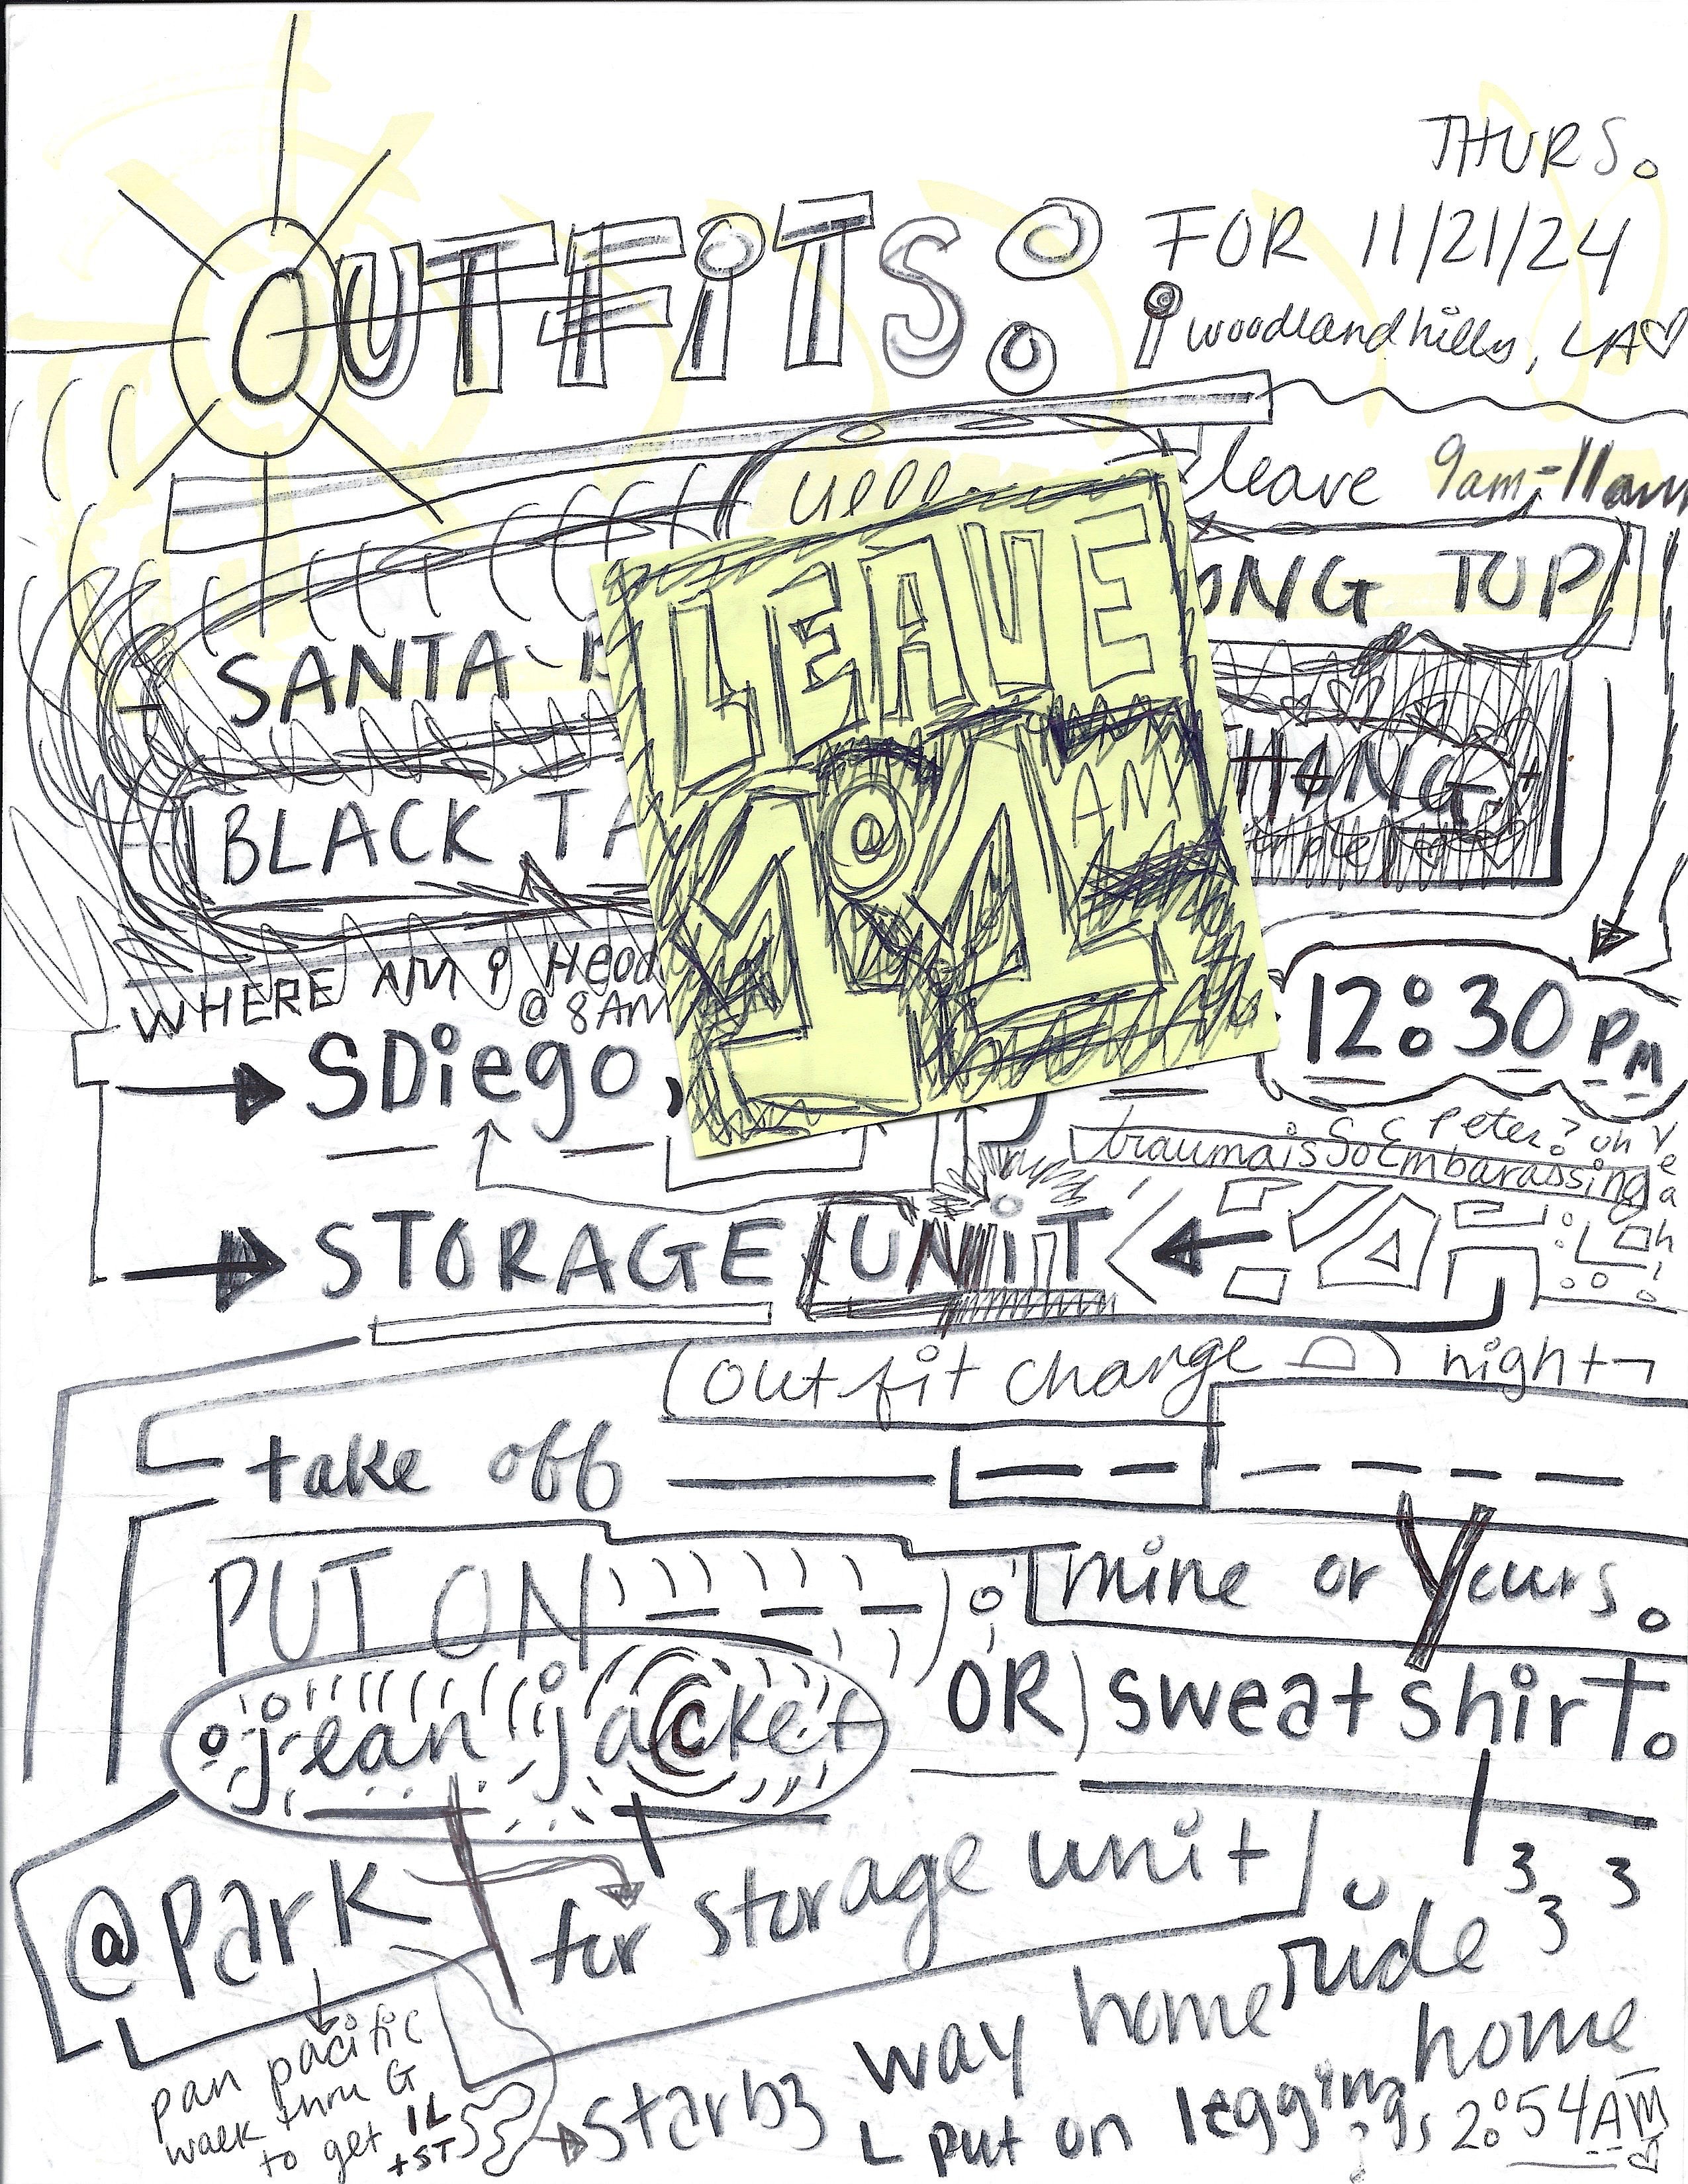 THURS.
OUTFiTS: FOR 11/21/24
woodlandhills, LA
leave 9am-11am
LEAVE
AM
SANTA
ONG TOP
BLACK TA
HONG
WHERE AM i Head
@ 8AM
12:30 PM
SDiego,
Peter? oh Yeah!
traumaisSoEmbarassing
STORAGE UNiT
(outfit change ) night
take off
PUT ON
mine or Yours.
jean jacket OR) sweatshirT.
@Park for storage unit
way home ride home
pan pacific
walk thru G
to get 1L
+ST
Starbz
put on leggings
2:54AM